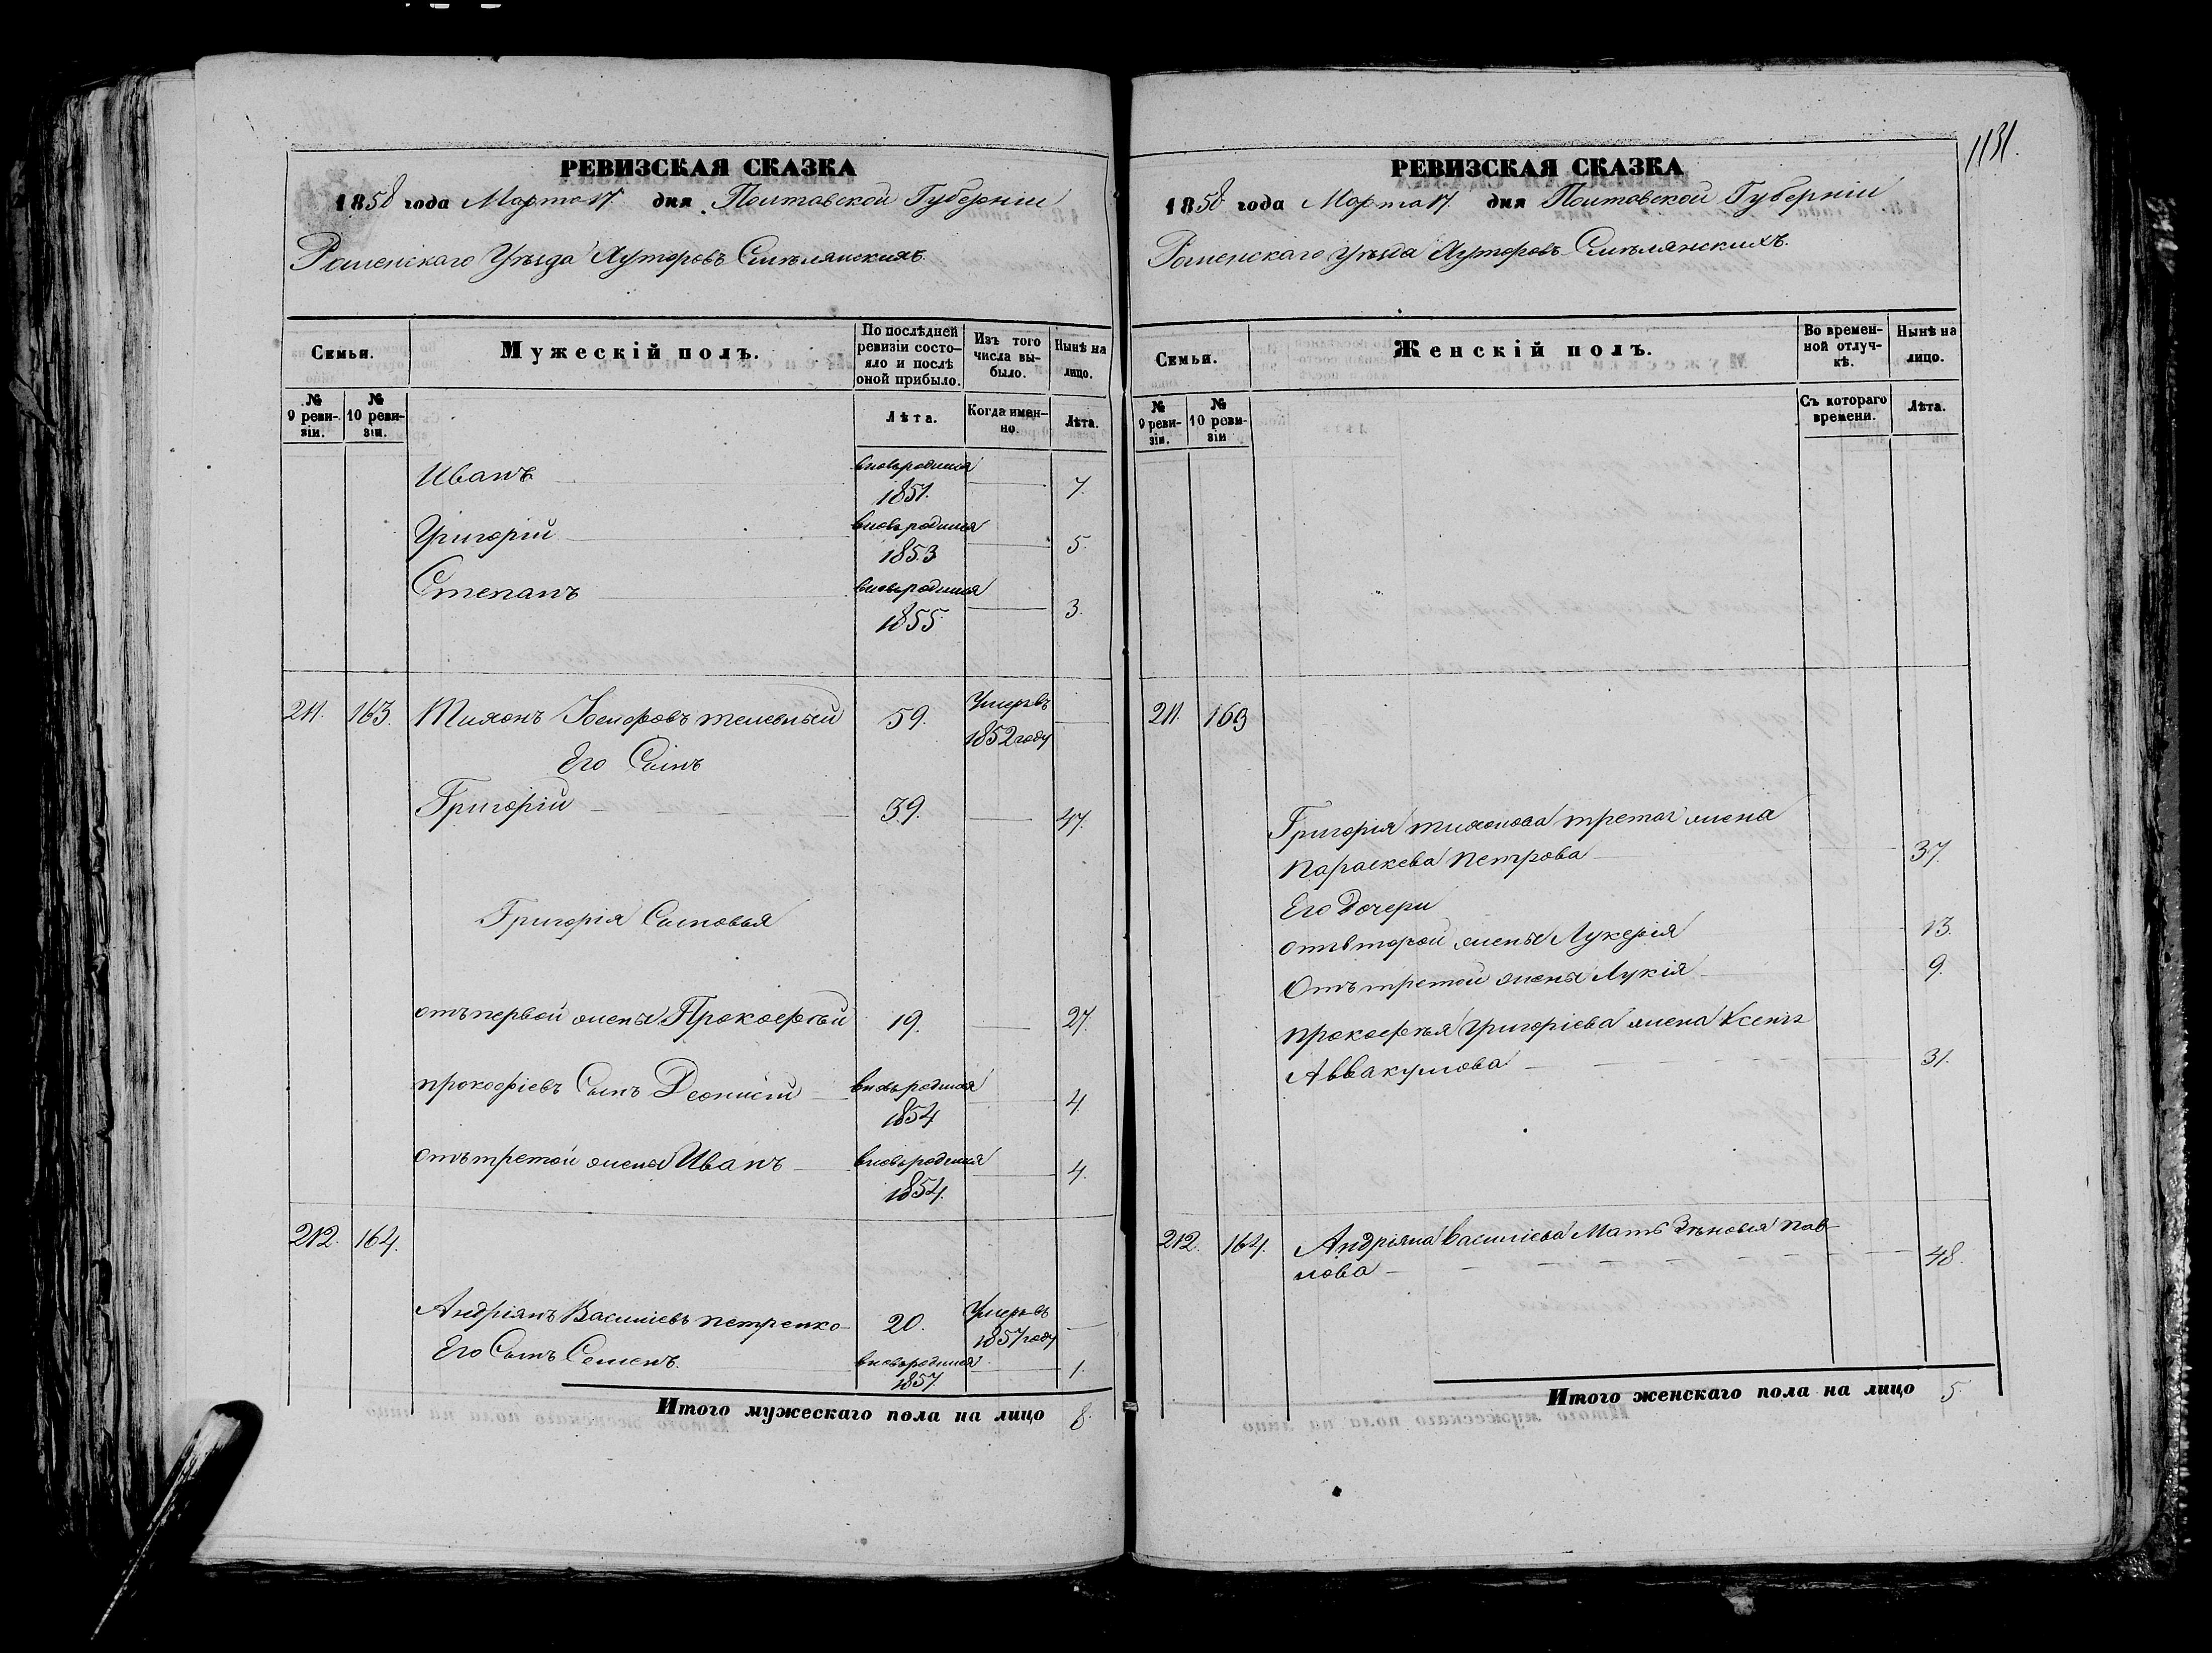 1131.
РЕВИЗСКАЯ СКАЗКА
1858 года Марта 17 дня Полтавской Губерніи
Роменскаго Уѣзда Хуторовъ Смѣлянскихъ.
Семьи.
Мужескій полъ.
По послѣдней ревизіи состо-
яло и послѣ оной прибыло.
Изъ того числа вы-
было.
Нынѣ на лицо.
№ 9 реви-
зіи.
№ 10 реви-
зіи.
Лѣта.
Когда имен-
но.
Лѣта.
Иванъ вновьродился 1851. 7.
Григорій вновьродился 1853 5.
Степанъ вновьродился 1855 3.
211. 163. Тихонъ Умеръ въ
59. 1852 году
Его Сынъ
Григорій 39. 47.
Григорія Сыновья
отъ первой жены Прокофѣй 19. 27.
прокофіевъ Сынъ Деонисій вновьродился 1854 4.
отъ третой жены Иванъ вновьродился 1854. 4.
212. 164.
Андріянъ Василіевъ петренко 20. Умеръ въ 1857 году
Его Сынъ Семенъ. вновьродился 1857 1.
Итого мужескаго пола на лицо 8.
РЕВИЗСКАЯ СКАЗКА
1858 года Марта 17. дня Полтавской Губерніи
Роменскаго Уѣзда Хуторовъ Смѣлянскихъ.
Семьи.
Женскій полъ.
Во времен-
ной отлуч-
кѣ.
Нынѣ на лицо.
№ 9 реви-
зіи.
№ 10 реви-
зіи
Съ котораго времени.
Лѣта.
211. 163
Григорія тихонова третая жена
параскева петрова 37.
Его Дочери
отъ второй жены Лукерія 13.
Отъ третой жены Лукія 9.
прокофѣя Григоріева жена Ксенія
Аввакумова 31.
212. 164. Андріяна Василіева Мать Зѣновія пав-
лова 48.
Итого женскаго пола на лицо 5.